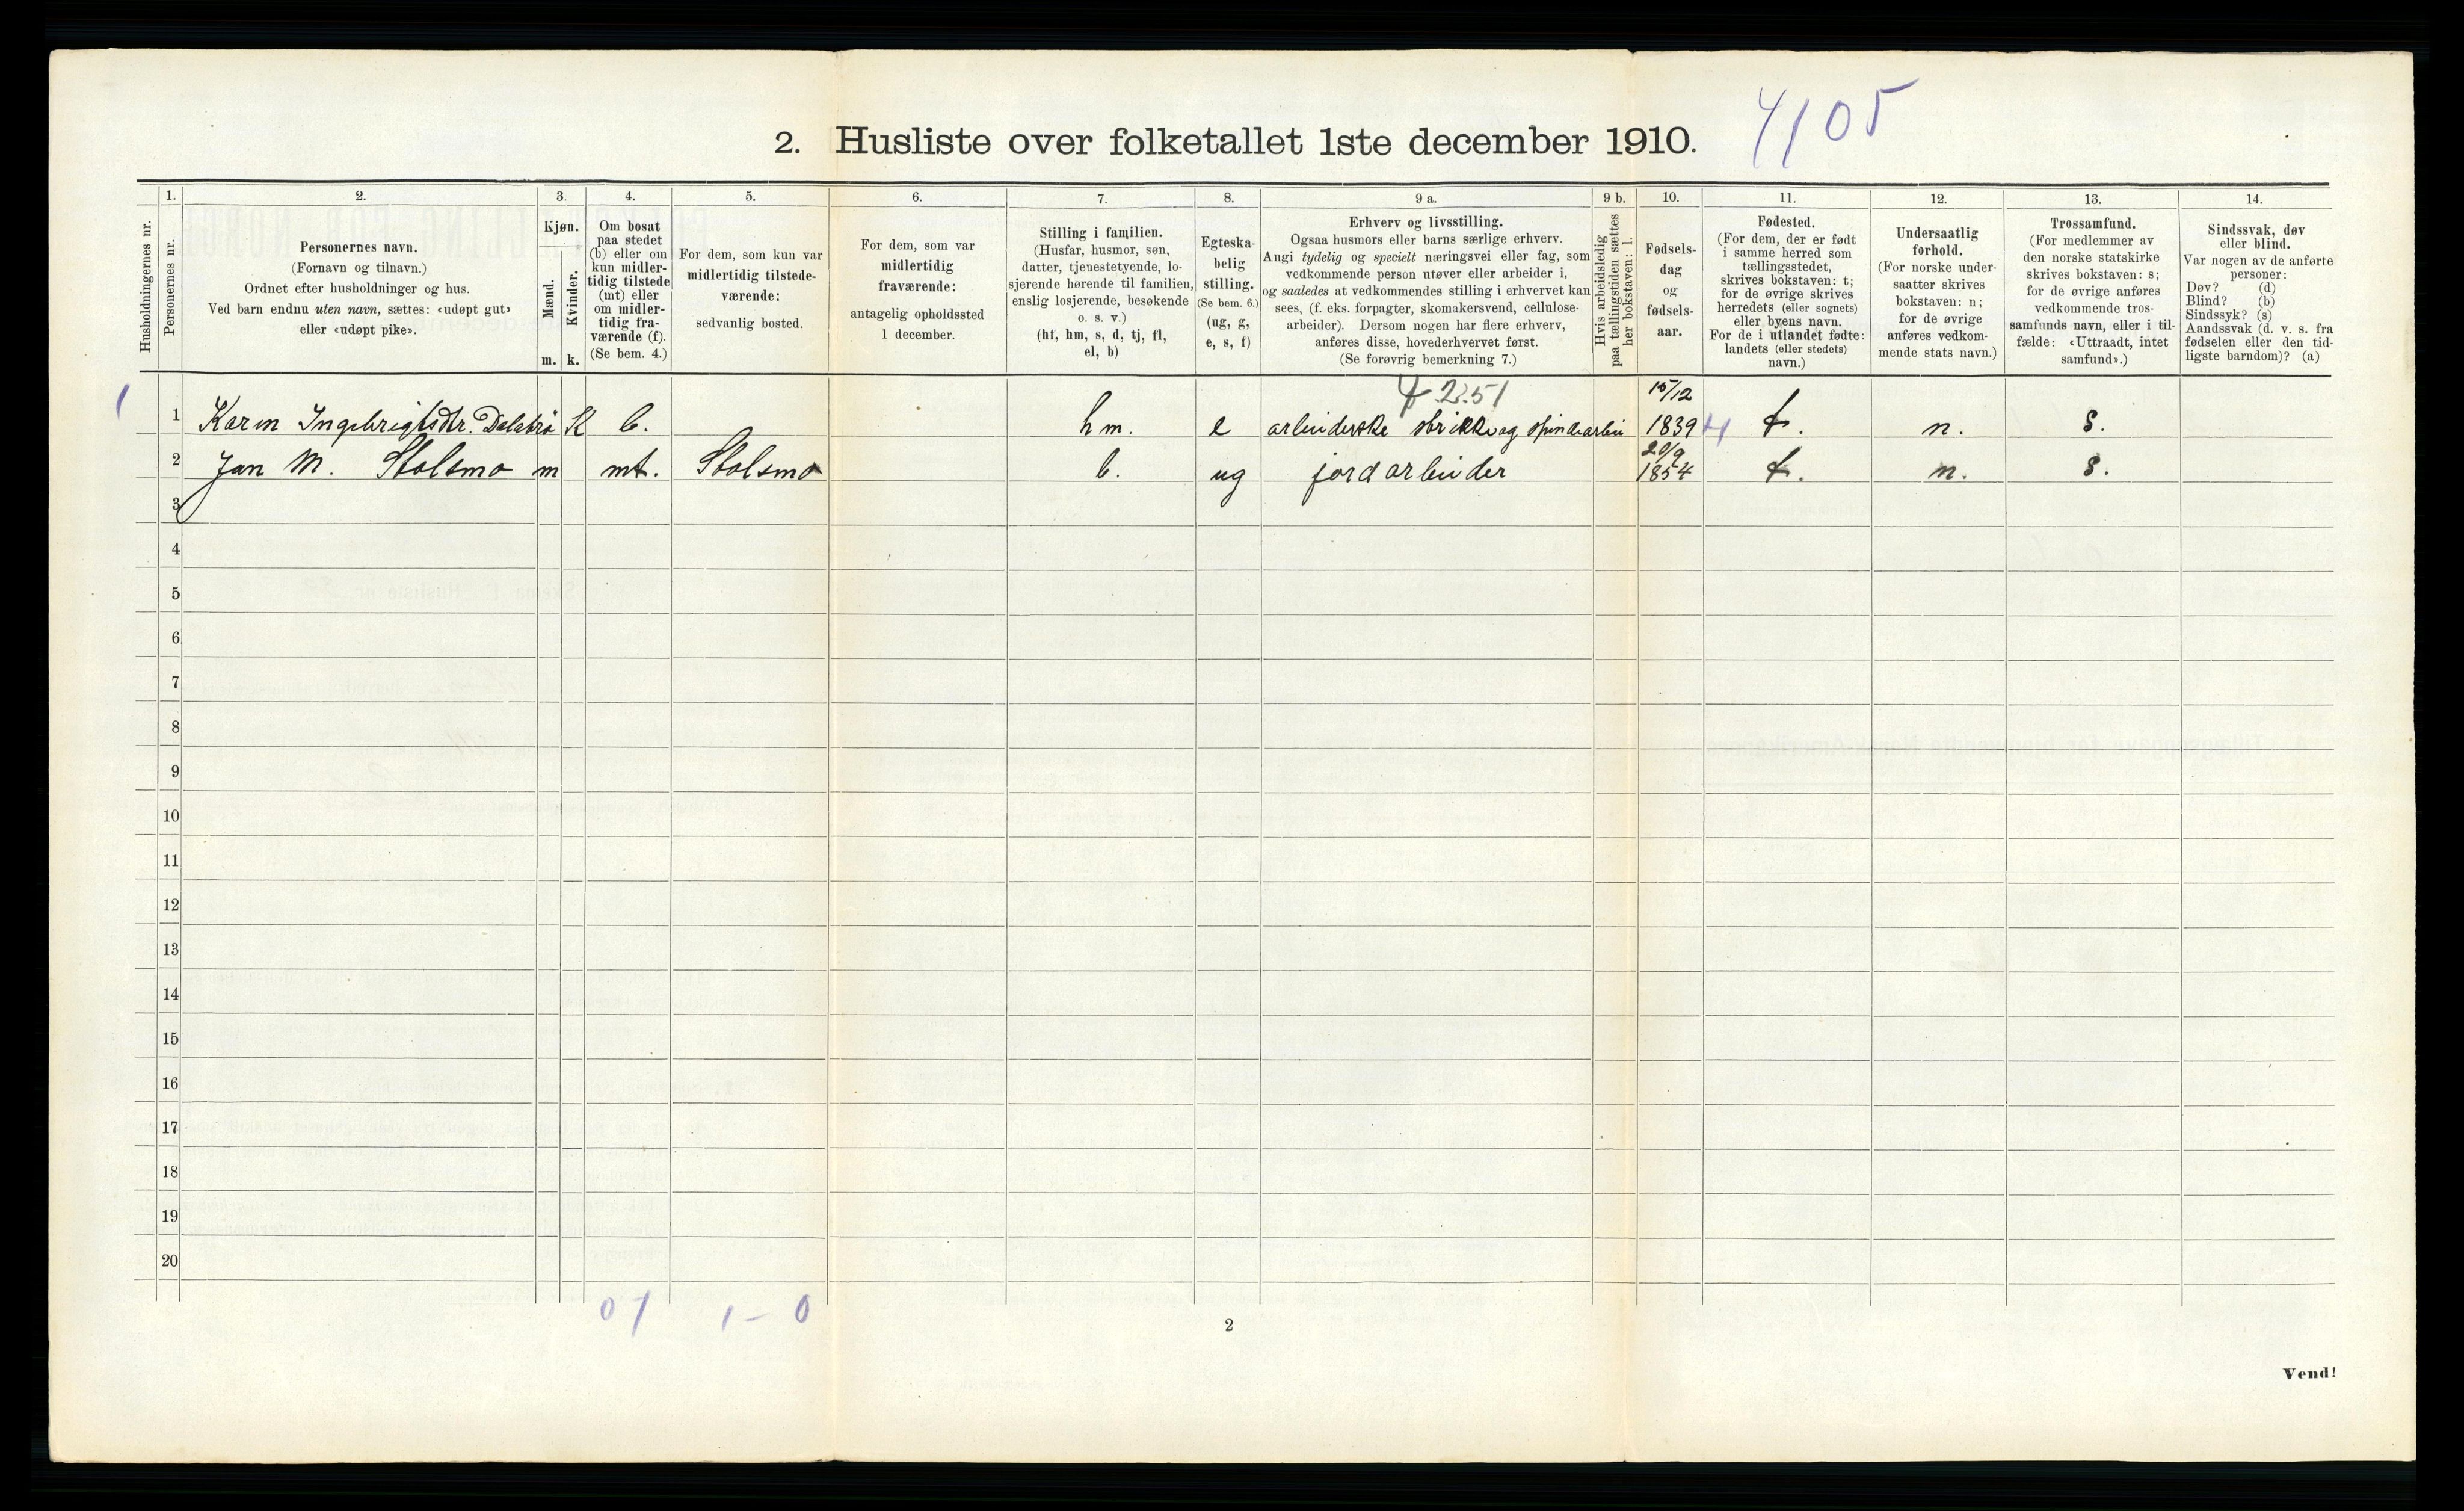 4105
2. Husliste over folketallet 1ste december 1910.
Husholdningernes nr.
1.
Personernes nr.
2.
Personernes navn.
(Fornavn og tilnavn.)
Ordnet efter husholdninger og hus.
Ved barn endnu uten navn, sættes: «udøpt gut»
eller «udøpt pike».
3.
Kjøn.
Mænd.
Kvinder.
m. k.
4.
Om bosat
paa stedet
(b) eller om
kun midler-
tidig tilstede
(mt) eller
om midler-
tidig fra-
værende (f).
(Se bem. 4.)
5.
For dem, som kun var
midlertidig tilstede-
værende:
sedvanlig bosted.
6.
For dem, som var
midlertidig
fraværende:
antagelig opholdssted
1 december.
7.
Stilling i familien.
(Husfar, husmor, søn,
datter, tjenestetyende, lo-
sjerende hørende til familien,
enslig losjerende, besøkende
o. s. v.)
(hf, hm, s, d, tj, fl,
el, b)
8.
Egteska-
belig
stilling.
(Se bem. 6.)
(ug, g,
e, s, f)
9 a.
Erhverv og livsstilling.
Ogsaa husmors eller barns særlige erhverv.
Angi tydelig og specielt næringsvei eller fag, som
vedkommende person utøver eller arbeider i,
og saaledes at vedkommendes stilling i erhvervet kan
sees, (f. eks. forpagter, skomakersvend, cellulose-
arbeider). Dersom nogen har flere erhverv,
anføres disse, hovederhvervet først.
(Se forøvrig bemerkning 7.)
9 b.
Hvis arbeidsledig
paa tællingstiden sættes
her bokstaven: l.
10.
Fødsels-
dag
og
fødsels-
aar.
11.
Fødested.
(For dem, der er født
i samme herred som
tællingsstedet,
skrives bokstaven: t;
for de øvrige skrives
herredets (eller sognets)
eller byens navn.
For de i utlandet fødte:
landets (eller stedets)
navn.)
12.
Undersaatlig
forhold.
(For norske under-
saatter skrives
bokstaven: n;
for de øvrige
anføres vedkom-
mende stats navn.)
13.
Trossamfund.
(For medlemmer av
den norske statskirke
skrives bokstaven: s;
for de øvrige anføres
vedkommende tros-
samfunds navn, eller i til-
fælde: «Uttraadt, intet
samfund».)
14.
Sindssvak, døv
eller blind.
Var nogen av de anførte
personer:
Døv? (d)
Blind? (b)
Sindssyk? (s)
Aandssvak (d. v. s. fra
fødselen eller den tid-
ligste barndom)? (a)
1 1 Karen Ingebrigtsdtr. Dalabrø K b. hm. e 2.51 arbeiderske strikk og spindearbei 15/12 1839 4 t. n. s.
2 Jan M. Stolsmo m mt. Stolsmo b. ug jordarbeider 20/9 1854 t. n. s.
3
4
5
6
7
8
9
10
11
12
13
14
15
16
17
18
19
20
01 1-0
2
Vend!